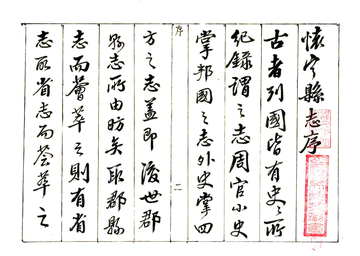 懷寧縣志序
古者列國皆有史之所
紀錄謂之志周官小史
掌邦國之志外史掌四
序
二
方之志蓋即後世郡
縣志所由昉矣取郡縣
志而薈萃之則有省
志取省志而薈萃之